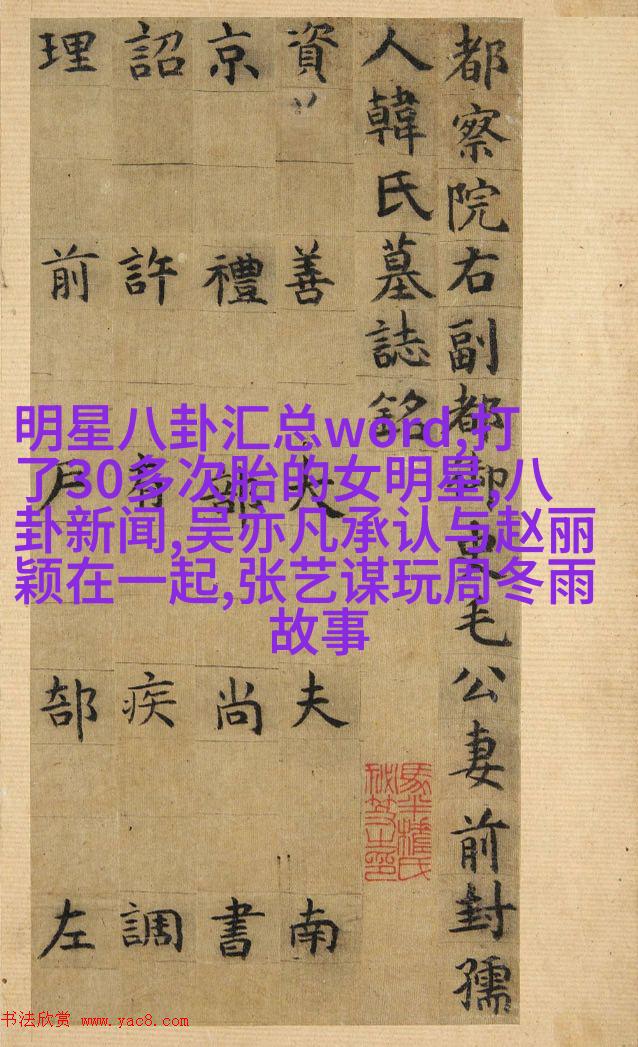 都察院右副都御史毛公妻前封孺
人韓氏墓誌銘
資善大夫南
京禮部尚書
詔許有疾調
理前部左
明星八卦汇总word,打
了30多次胎的女明星,八
卦新闻,吴亦凡承认与赵丽
颖在一起,张艺谋玩周冬雨
故事
书法欣赏 www.yac8.com